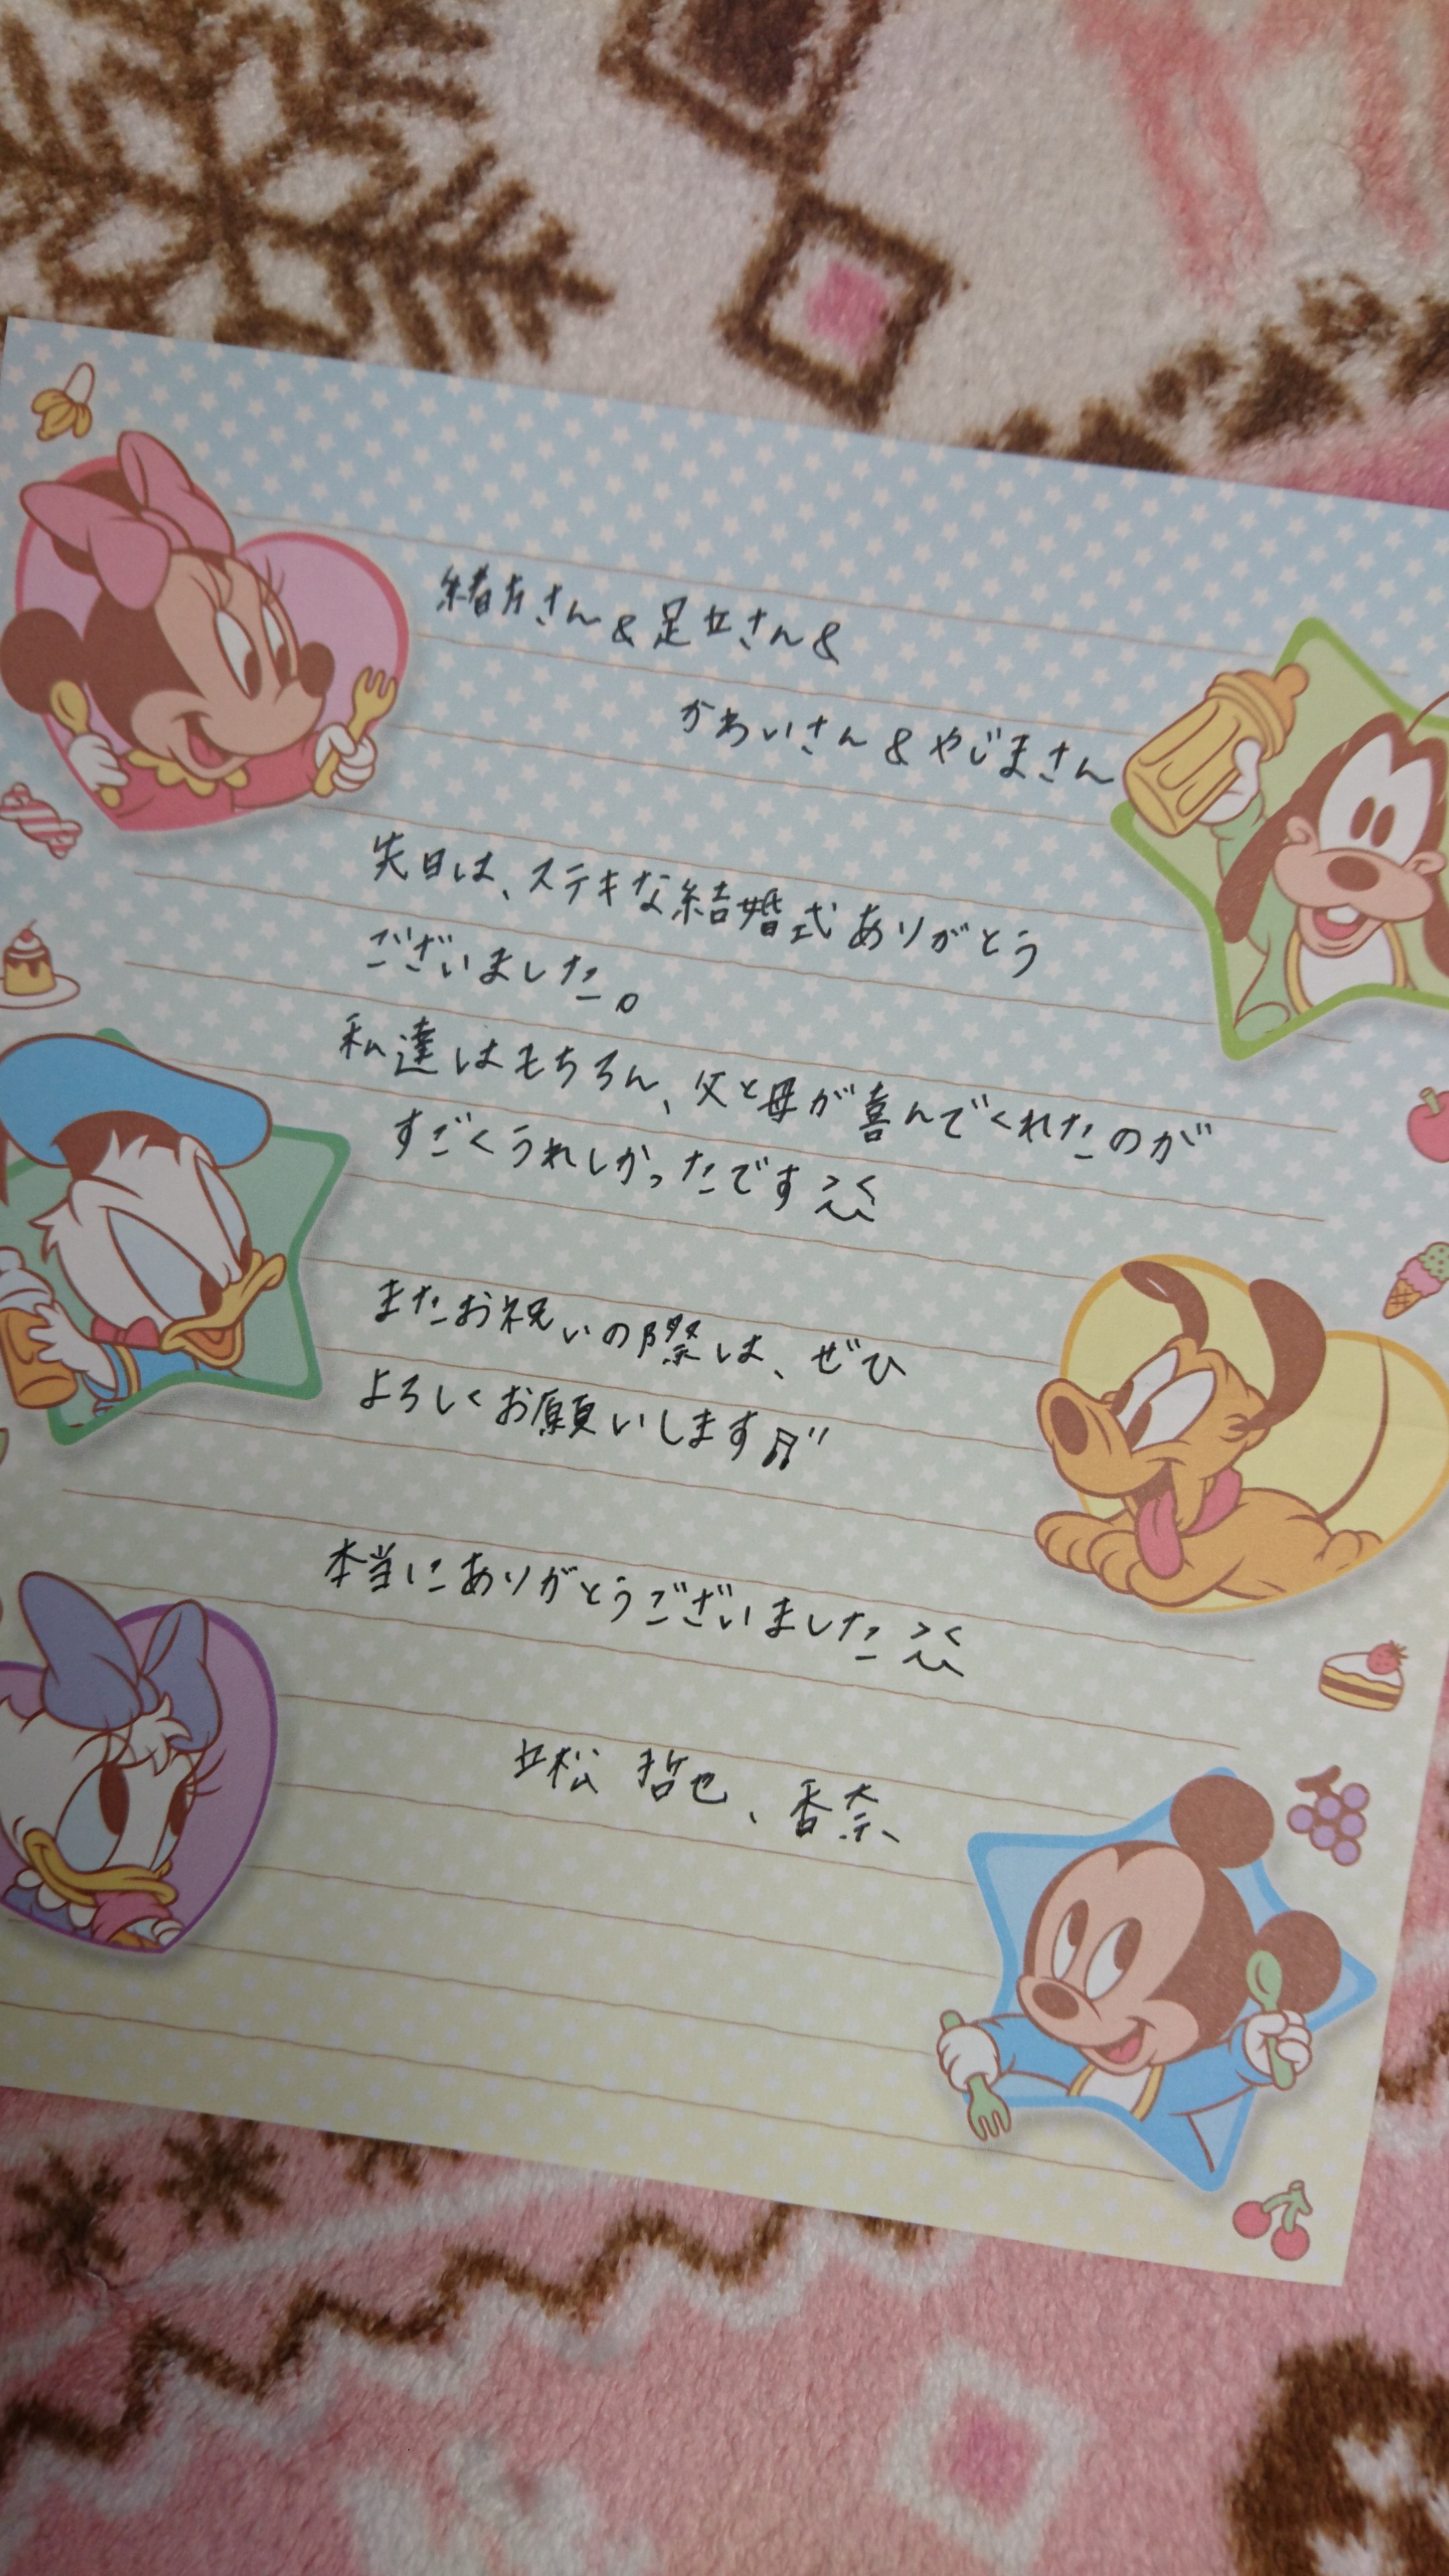 緒方さん&足立さん&
かわいさん&やじまさん
先日は、ステキな結婚式ありがとう
ございました。
私達はもちろん、父と母が喜んでくれたのが
すごくうれしかったです
またお祝いの際は、ぜひ
よろしくお願いします♬
本当にありがとうございました
立松 哲也、香奈